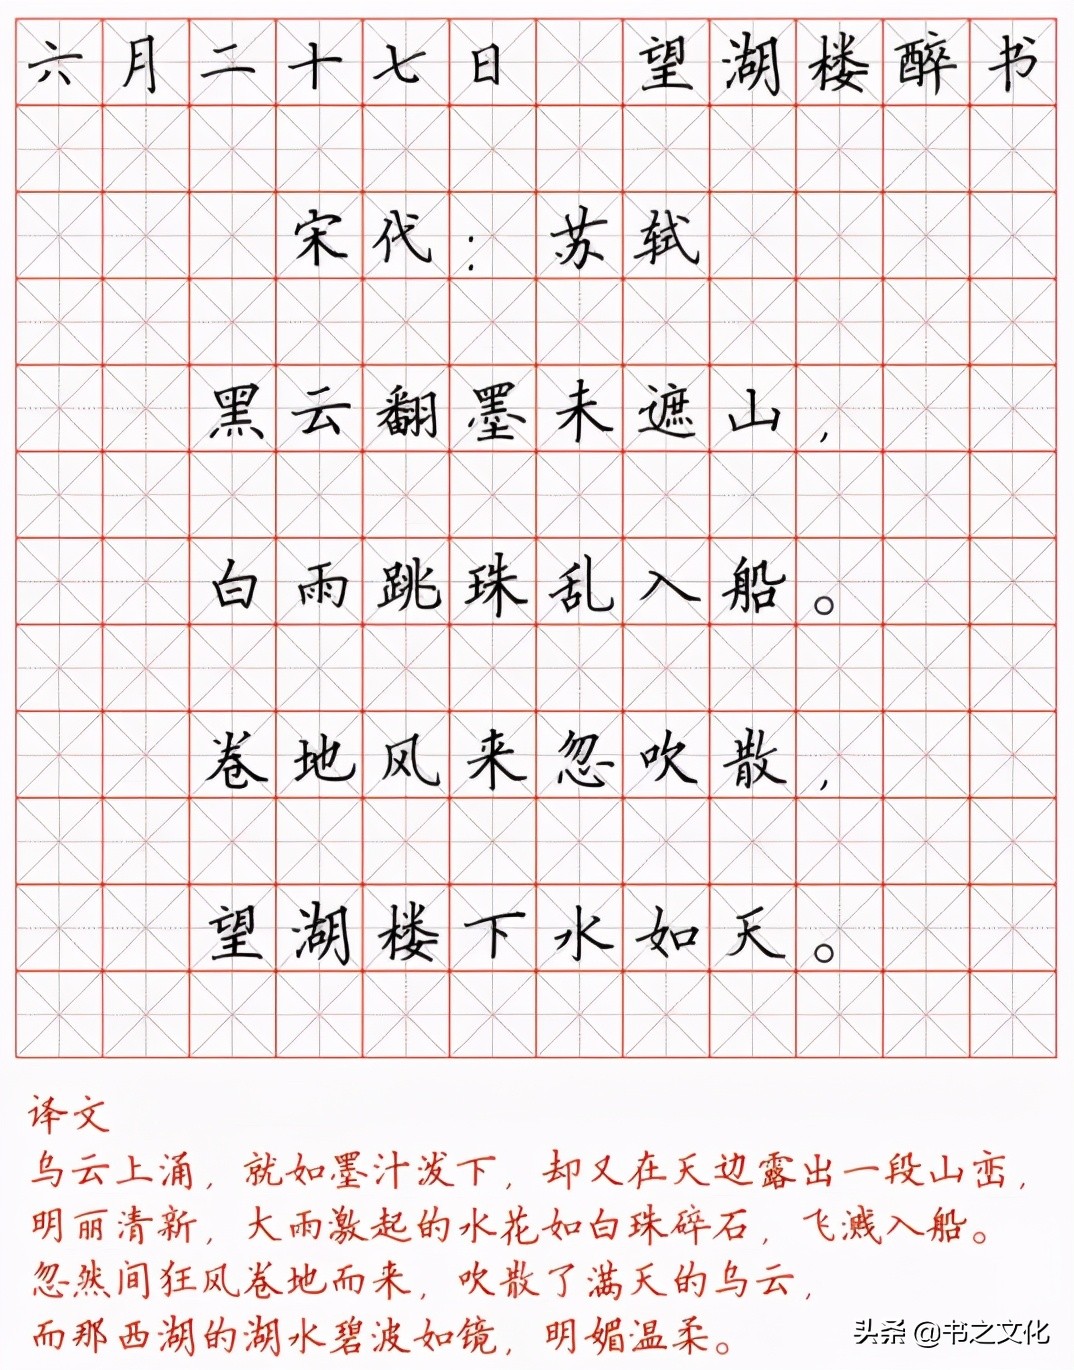 六月二十七日 望湖楼醉书
宋代：苏轼
黑云翻墨未遮山，
白雨跳珠乱入船。
卷地风来忽吹散，
望湖楼下水如天。
译文
乌云上涌，就如墨汁泼下，却又在天边露出一段山峦，
明丽清新，大雨激起的水花如白珠碎石，飞溅入船。
忽然间狂风卷地而来，吹散了满天的乌云，
而那西湖的湖水碧波如镜，明媚温柔。
头条 @书之文化